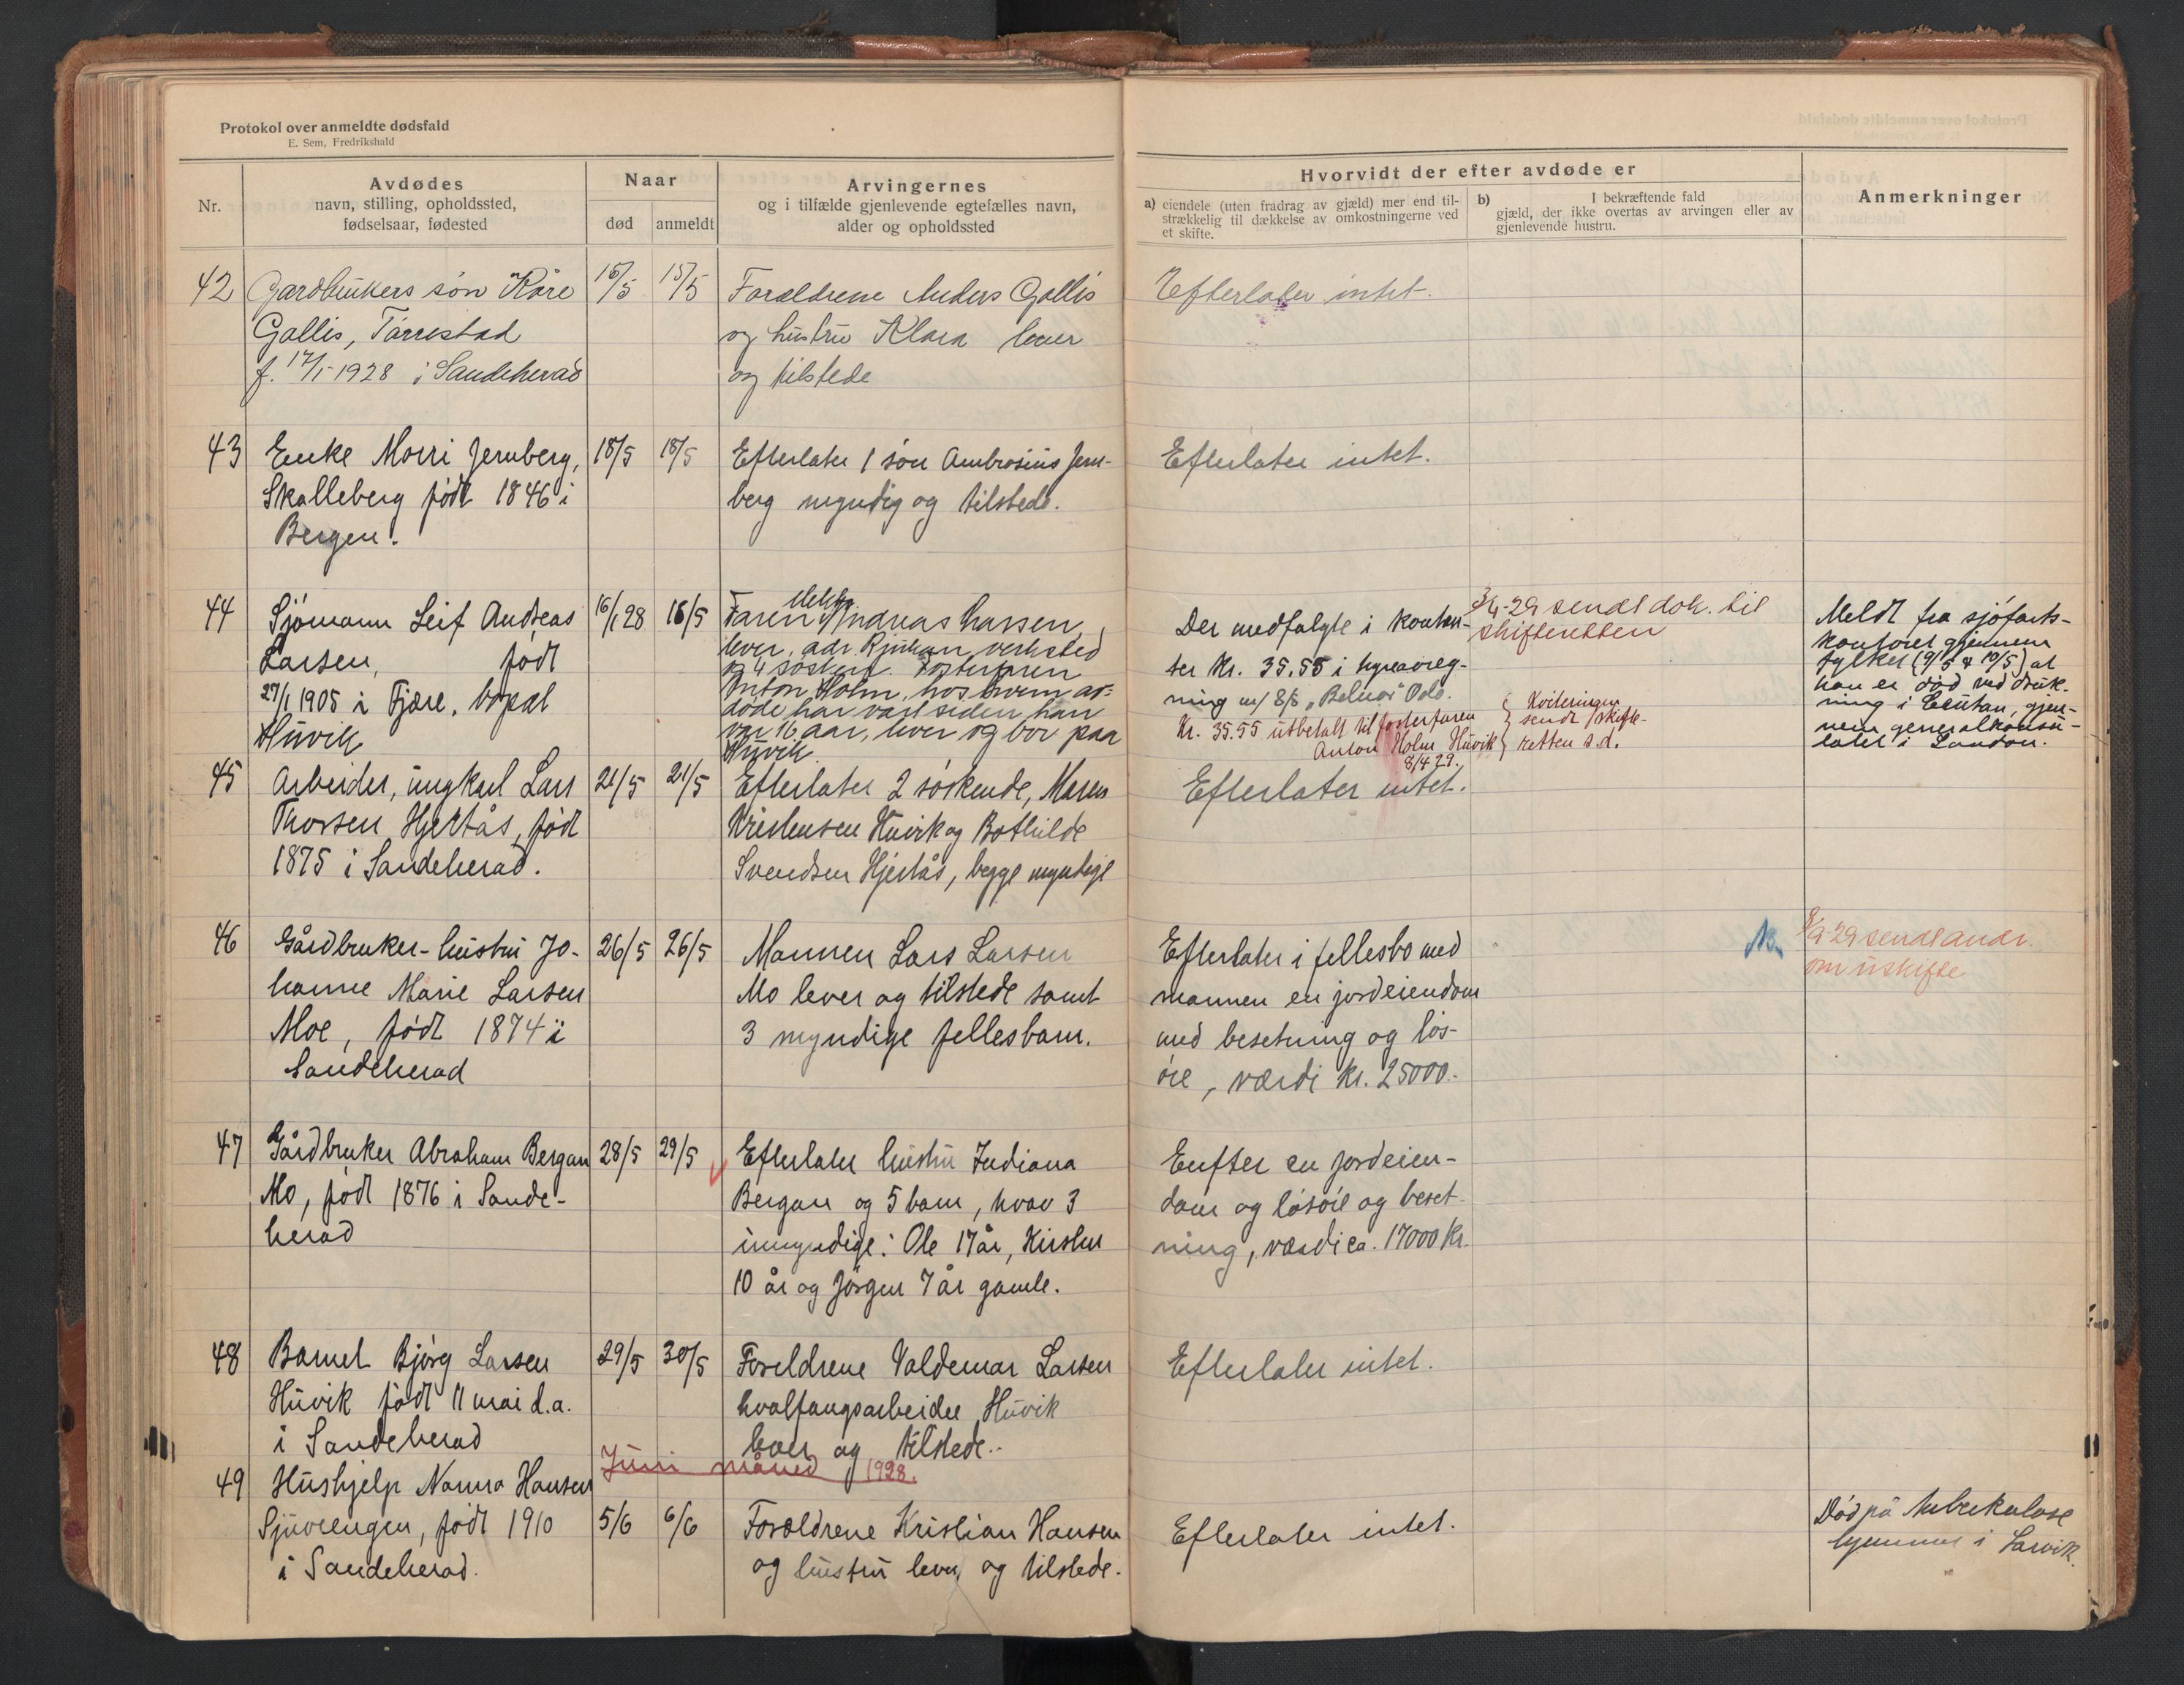 Protokol over anmeldte dødsfald
E. Sem, Fredrikshald
Nr.
Avdødes
navn, stilling, opholdssted,
fødselsaar, fødested
Naar
død
anmeldt
Arvingernes
og i tilfælde gjenlevende egtefælles navn,
alder og opholdssted
Hvorvidt der efter avdøde er
a) eiendele (uten fradrag av gjæld) mer end til-
strækkelig til dækkelse av omkostningerne ved
et skifte.
b) I bekræftende fald
gjæld, der ikke overtas av arvingen eller av
gjenlevende hustru.
Anmerkninger
42
Gardbrukers søn Kåre
Gallis, Tørrestad
f. 17/1 1928 i Sandeherad
15/5
Forældrene Anders Gallis
og hustru Klara lever
og tilstede
Efterlater intet.
43
Enke Morri Jernberg,
Skalleberg født 1846 i
Bergen.
18/5
18/5
Efterlater 1 søn Ambrosius Jern-
berg myndig og tilstede.
Efterlater intet.
44
Sjømann Leif Andreas
Larsen, født
27/1 1905 i Fjære, bopæl
Huvik
16/1 28
16/5
Faren Andreas Larsen,
lever, adr. Rjukan verksted
og 4 søsken. Fosterfaren
Anton Holm, hos hvem av-
døde har vært siden han
var 16 aar, lever og bor paa
Huvik
Der medfølgte i kontan-
ter kr. 35.55 i hyreavreg-
ning m/ S/S Oslo.
Kr. 35.55 utbetalt til fosterfaren
Anton Holm Huvik
8/4 29.
3/4-29 sendt dok. til
skifteretten
Kvitteringen
sendt skifte-
retten s.d.
Meldt fra sjøfarts-
kontoret gjennem
fylket (9/5 & 10/5) at
han er død ved druk-
ning i gjen-
nem generalkonsu-
latet i London.
45
Arbeider, ungkarl Lars
Thorsen Hjertås, født
1875 i Sandeherad.
21/5
21/5
Efterlater 2 søskende, Maren
Kristensen Huvik og Bothilde
Svendsen Hjertås, begge myndige
Efterlater intet.
46
Gårdbruker-hustru Jo-
hanne Marie Larsen
Moe, født 1874 i
Sandeherad
26/5
26/5
Mannen Lars Larsen
Mo lever og tilstede samt
3 myndige fellesbarn.
Efterlater i fellesbo med
mannen en jordeiendom
med besetning og løs-
øre, værdi kr. 25000.-
8/9-29 sendt andr.
om uskifte
47
Gårdbruker Abraham Bergan
Mo, født 1876 i Sande-
herad
28/5
29/5
Efterlater hustru Indiana
Bergan og 5 barn, hvav 3
umyndige: Ole 17 år, Kirsten
10 år og Jørgen 7 år gamle.
en jordeien-
dom og løsøre og beset-
ning, værdi ca. 17000 kr.
48
Barnet Bjørg Larsen
Huvik født 11 mai d.a.
i Sandeherad
29/5
30/5
Foreldrene Valdemar Larsen
hvalfangsarbeider Huvik
lever og tilstede.
Efterlater intet.
Juni måned 1928.
49
Hushjelp Nanna Hansen
født 1910
i Sandeherad.
5/6
6/6
Forældrene Kristian Hansen
og hustru lever og tilstede.
Efterlater intet.
Død på tuberkulose
hjemmet i Larvik.